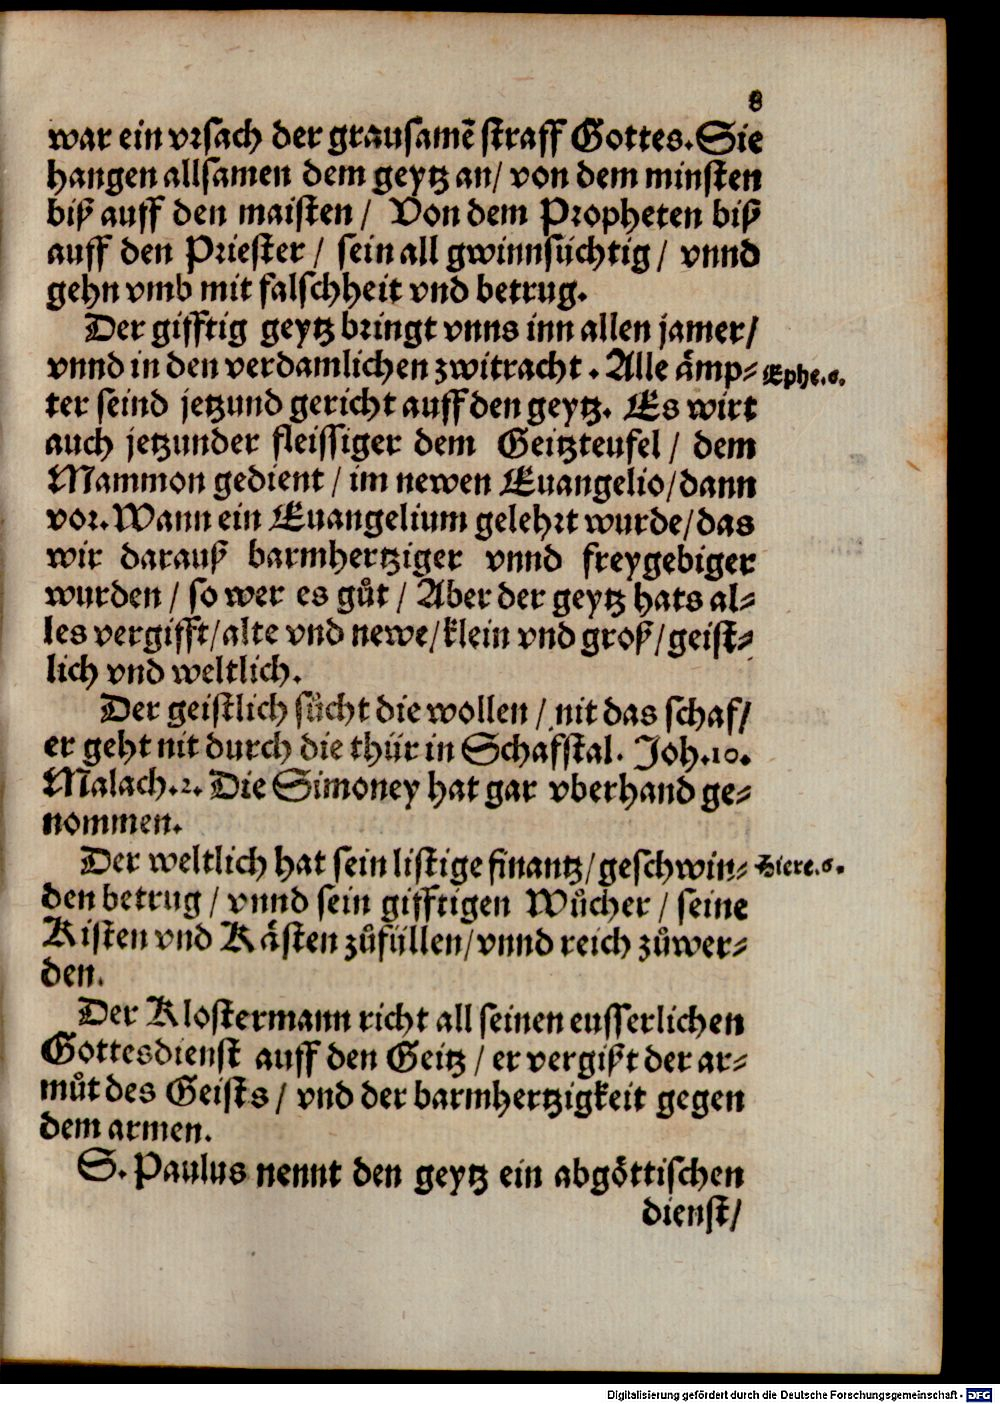 8
war ein vrsach der grausamē straff Gottes. Sie
hangen allsamen dem geytz an/ von dem minsten
biß auff den maisten / Von dem Propheten biß
auff den Priester / sein all gwinnsüchtig / vnnd
gehn vmb mit falschheit vnd betrug.
Der gifftig geytz bringt vnns inn allen jamer/
vnnd in den verdamlichen zwitracht. Alle ämp⸗
Ephe.6.
ter seind jetzund gericht auff den geytz. Es wirt
auch jetzunder fleissiger dem Geitzteufel / dem
Mammon gedient / im newen Euangelio/dann
vor. Wann ein Euangelium gelehrt wurde/das
wir darauß barmhertziger vnnd freygebiger
wurden / so wer es gůt / Aber der geytz hats al⸗
les vergifft/alte vnd newe/klein vnd groß/geist⸗
lich vnd weltlich.
Der geistlich sůcht die wollen / nit das schaf/
er geht nit durch die thür in Schafstal. Joh.10.
Malach.2. Die Simoney hat gar vberhand ge⸗
nommen.
Der weltlich hat sein listige finantz/geschwin⸗
Hiere.6.
den betrug / vnnd sein gifftigen Wůcher / seine
Kisten vnd Kästen zůfüllen/vnnd reich zůwer⸗
den.
Der Klostermann richt all seinen eusserlichen
Gottesdienst auff den Geitz / er vergißt der ar⸗
můt des Geists / vnd der barmhertzigkeit gegen
dem armen.
S. Paulus nennt den geytz ein abgöttischen
dienst/
Digitalisierung gefördert durch die Deutsche Forschungsgemeinschaft - DFG